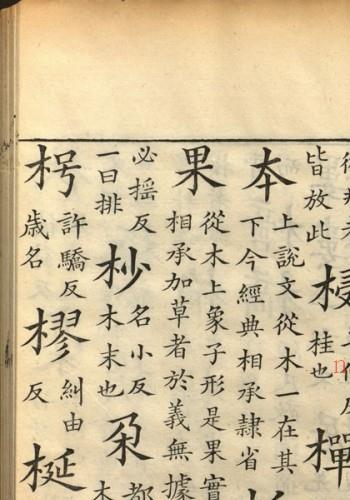 皆放此
桂也
樿
本
上說文從木一在其
下今經典相承隸省
果
從木上象子形是果實
相承加草者於義無據
必揺反
一曰排
杪
名小反
木末也
朶
都
木
枵
許驕反
歲名
樛
糾由
反
梴